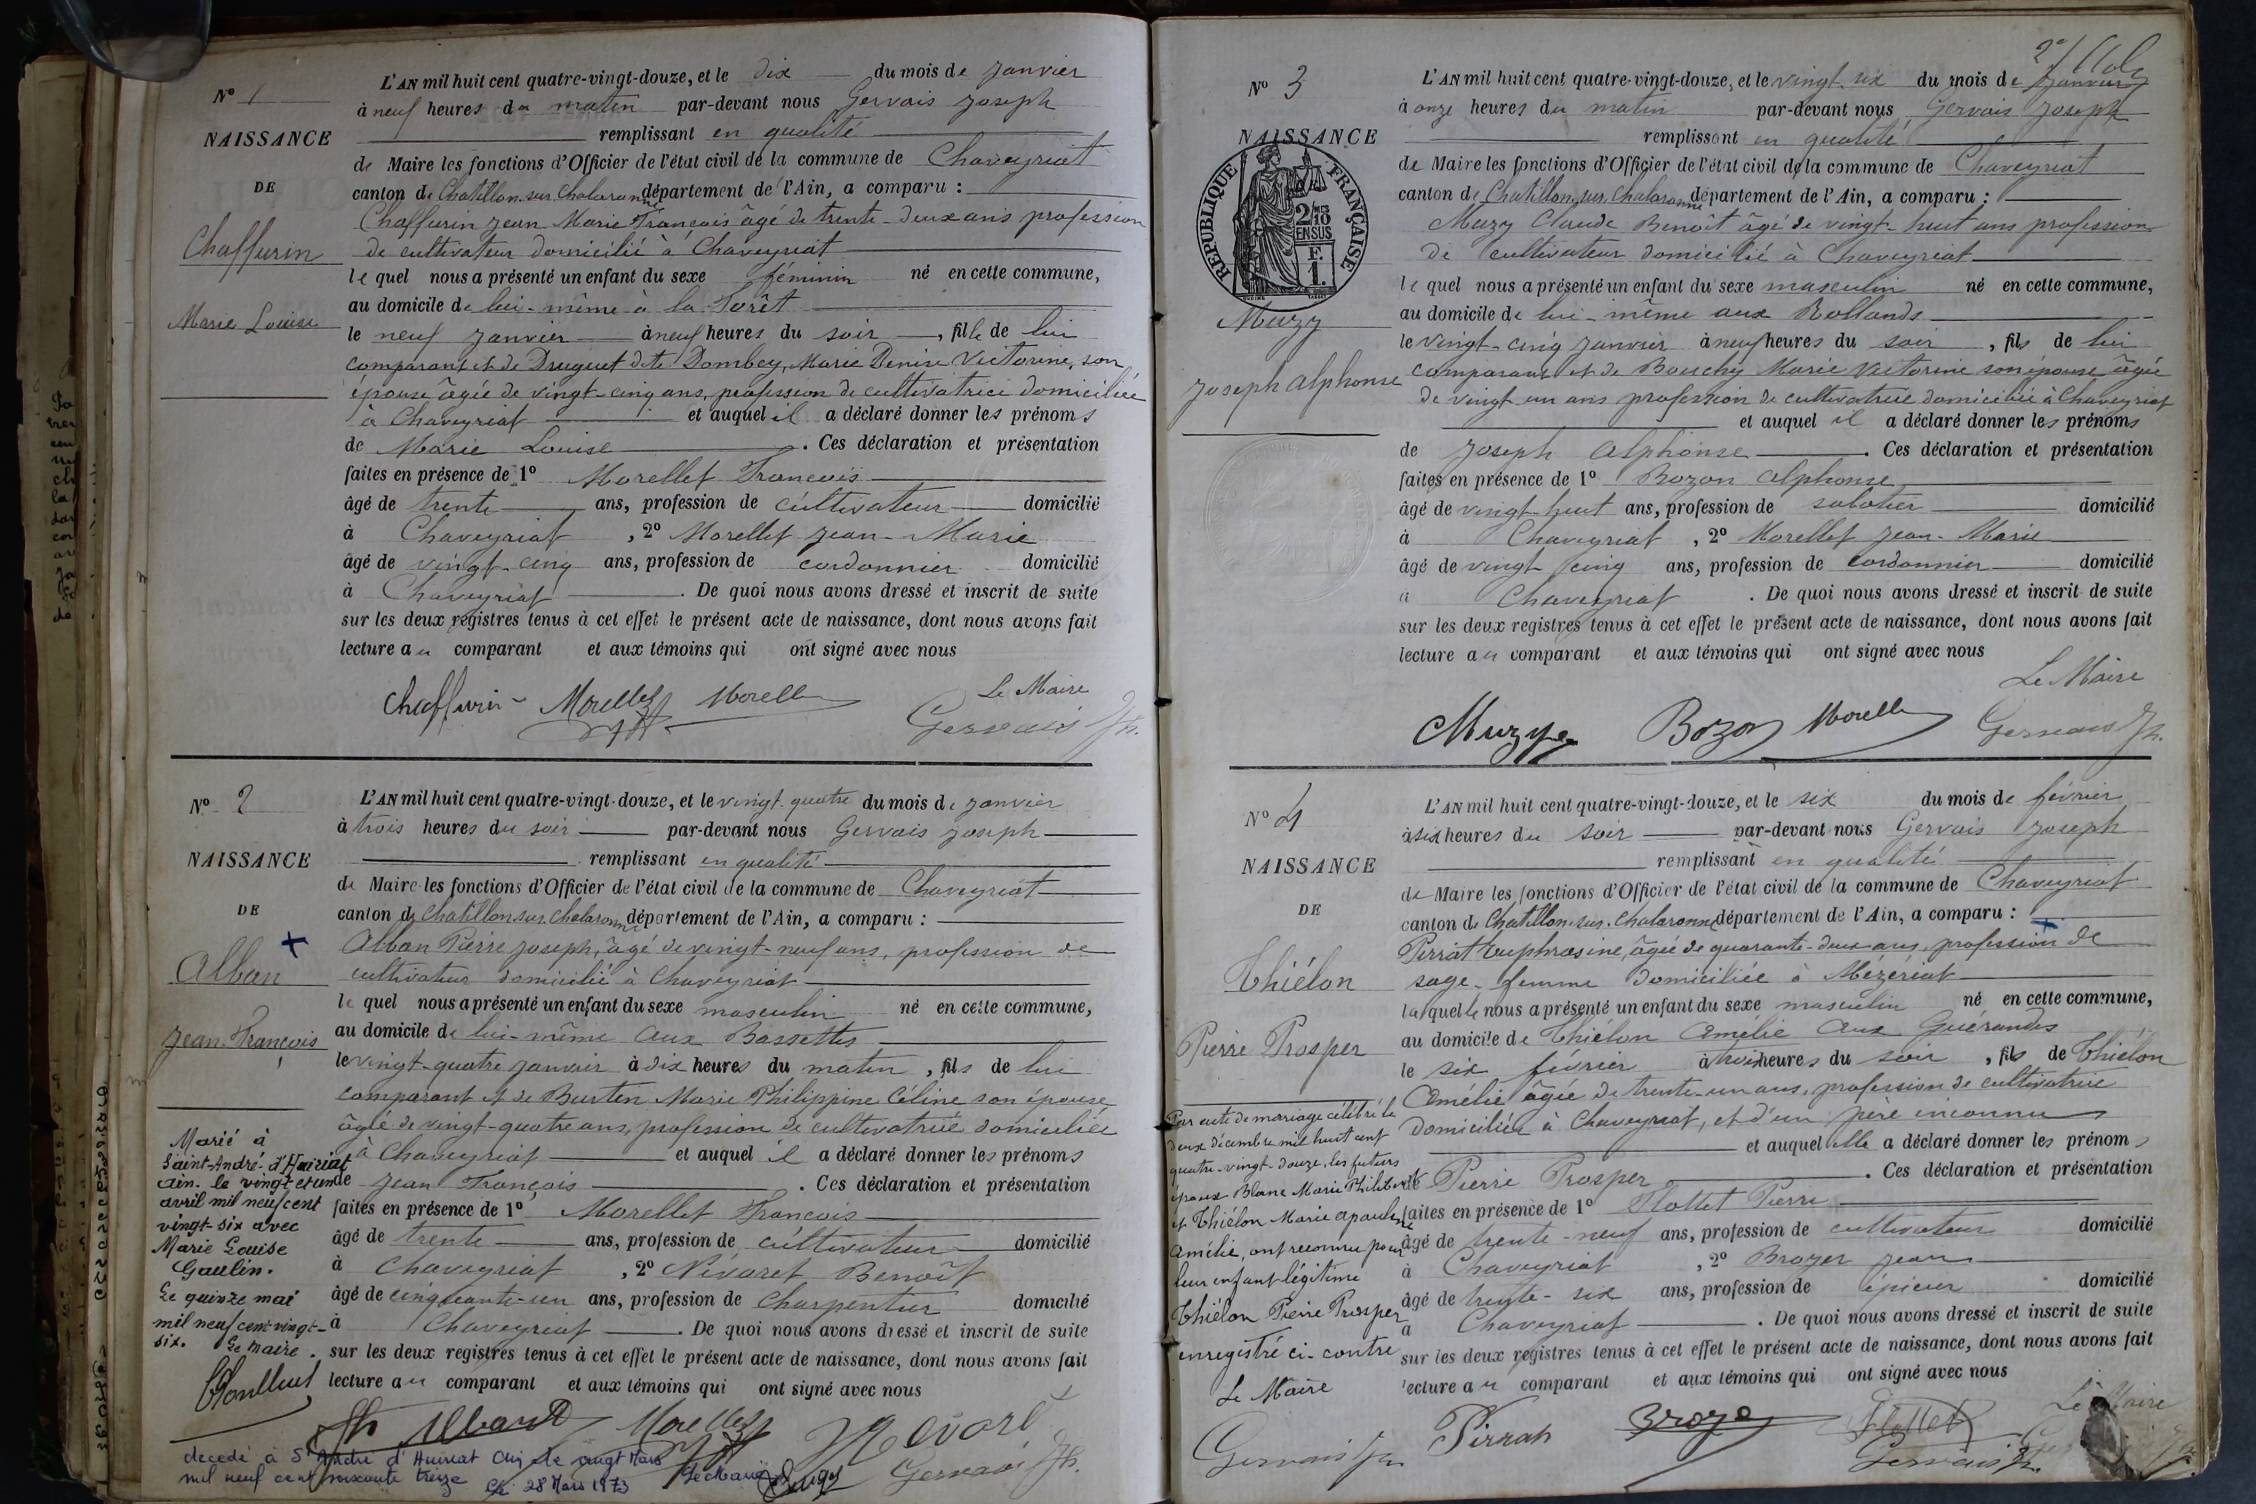 N° 1
NAISSANCE
DE
Chaffurin
Marie Louise
L'AN mil huit cent quatre-vingt-douze, et le dix du mois de janvier
à neuf heures du matin par-devant nous Gervais Joseph
remplissant en qualité
de Maire les fonctions d'Officier de l'état civil de la commune de Chaveyriat
canton de Chatillon-sur-Chalaronne département de l'Ain, a comparu :
Chaffurin Jean Marie François âgé de trente-deux ans profession
de cultivateur domicilié à Chaveyriat
le quel nous a présenté un enfant du sexe féminin né en cette commune,
au domicile de lui-même à la Forêt
le neuf janvier à neuf heures du soir, fille de lui
comparant et de Druguet dite Dombey, Marie Denise Victorine, son
épouse âgée de vingt-cinq ans, profession de cultivatrice domiciliée
à Chaveyriat et auquel il a déclaré donner les prénoms
de Marie Louise. Ces déclaration et présentation
faites en présence de 1° Morellet François
âgé de trente ans, profession de cultivateur domicilié
à Chaveyriat, 2° Morellet Jean-Marie
âgé de vingt-cinq ans, profession de cordonnier domicilié
à Chaveyriat. De quoi nous avons dressé et inscrit de suite
sur les deux registres tenus à cet effet le présent acte de naissance, dont nous avons fait
lecture au comparant et aux témoins qui ont signé avec nous
Le Maire
Chaffurin Morellet Morell Gervais Jh.
N° 2
NAISSANCE
DE
Alban
Jean François
L'AN mil huit cent quatre-vingt-douze, et le vingt-quatre du mois de janvier
à trois heures du soir par-devant nous Gervais Joseph
remplissant en qualité
de Maire les fonctions d'Officier de l'état civil de la commune de Chaveyriat
canton de Chatillon-sur-Chalaronne département de l'Ain, a comparu :
Alban Pierre Joseph, âgé de vingt-neuf ans, profession de
cultivateur domicilié à Chaveyriat
le quel nous a présenté un enfant du sexe masculin né en cette commune,
au domicile de lui-même aux Bassettes
le vingt-quatre janvier à dix heures du matin, fils de lui
comparant et de Burtin Marie Philippine Céline son épouse
âgée de vingt-quatre ans, profession de cultivatrice domiciliée
à Chaveyriat et auquel il a déclaré donner les prénoms
de Jean François. Ces déclaration et présentation
faites en présence de 1° Morellet François
âgé de trente ans, profession de cultivateur domicilié
à Chaveyriat, 2° Névoret Benoît
âgé de cinquante-un ans, profession de charpentier domicilié
à Chaveyriat. De quoi nous avons dressé et inscrit de suite
sur les deux registres tenus à cet effet le présent acte de naissance, dont nous avons fait
lecture au comparant et aux témoins qui ont signé avec nous
Marié à
Saint-André-d'Huiriat
Ain. le vingt et un
avril mil neuf cent
vingt-six avec
Marie Louise
Gaulin.
Le quinze mai
mil neuf cent vingt-
six. Le Maire.
Jh Alban Morellet Nevoret
Gervais Jh.
decedé à St André d'Huiriat Ain le vingt Mars
mil neuf cent soixante treize Le 28 Mars 1973
N° 3
NAISSANCE
RÉPUBLIQUE FRANÇAISE
2/10 MES
EN SUS
F.
1.
Muzy
Joseph Alphonse
L'AN mil huit cent quatre-vingt-douze, et le vingt-six du mois de janvier
à onze heures du matin par-devant nous Gervais Joseph
remplissant en qualité
de Maire les fonctions d'Officier de l'état civil de la commune de Chaveyriat
canton de Chatillon-sur-Chalaronne département de l'Ain, a comparu :
Muzy Claude Benoît âgé de vingt-huit ans profession
de cultivateur domicilié à Chaveyriat
le quel nous a présenté un enfant du sexe masculin né en cette commune,
au domicile de lui-même aux Rollands
le vingt-cinq janvier à neuf heures du soir, fils de lui
comparant et de Bouchy Marie Victorine son épouse âgée
de vingt un ans profession de cultivatrice domiciliée à Chaveyriat
et auquel il a déclaré donner les prénoms
de Joseph Alphonse. Ces déclaration et présentation
faites en présence de 1° Bozon Alphonse
âgé de vingt-huit ans, profession de sabotier domicilié
à Chaveyriat, 2° Morellet Jean-Marie
âgé de vingt cinq ans, profession de cordonnier domicilié
à Chaveyriat. De quoi nous avons dressé et inscrit de suite
sur les deux registres tenus à cet effet le présent acte de naissance, dont nous avons fait
lecture au comparant et aux témoins qui ont signé avec nous
Le Maire
Muzy Bozon Morell Gervais Jh.
N° 4
NAISSANCE
DE
Thiélon
Pierre Prosper
L'AN mil huit cent quatre-vingt-douze, et le six du mois de février
à six heures du soir par-devant nous Gervais Joseph
remplissant en qualité
de Maire les fonctions d'Officier de l'état civil de la commune de Chaveyriat
canton de Chatillon-sur-Chalaronne département de l'Ain, a comparu :
Perrat Euphrosine, âgée de quarante-deux ans, profession de
sage-femme domiciliée à Mézériat
laquelle nous a présenté un enfant du sexe masculin né en cette commune,
au domicile de Thiélon Amélie aux Guérandes
le six février à trois heures du soir, fils de Thiélon
Amélie âgée de trente-un ans, profession de cultivatrice
domiciliée à Chaveyriat, et d'un père inconnu
et auquel elle a déclaré donner les prénoms
de Pierre Prosper. Ces déclaration et présentation
faites en présence de 1° Flottet Pierre
âgé de trente-neuf ans, profession de cultivateur domicilié
à Chaveyriat, 2° Broyer Jean
âgé de trente-six ans, profession de épicier domicilié
à Chaveyriat. De quoi nous avons dressé et inscrit de suite
sur les deux registres tenus à cet effet le présent acte de naissance, dont nous avons fait
lecture au comparant et aux témoins qui ont signé avec nous
Par acte de mariage célébré le
deux décembre mil huit cent
quatre-vingt-douze, les futurs
époux Blanc Marie Philibert
et Thiélon Marie Apauline
Amélie, ont reconnu pour
leur enfant légitime
Thiélon Pierre Prosper
enregistré ci-contre
Le Maire
Gervais Jh
Le Maire
Perrat Broye Flottet
Gervais Jh.